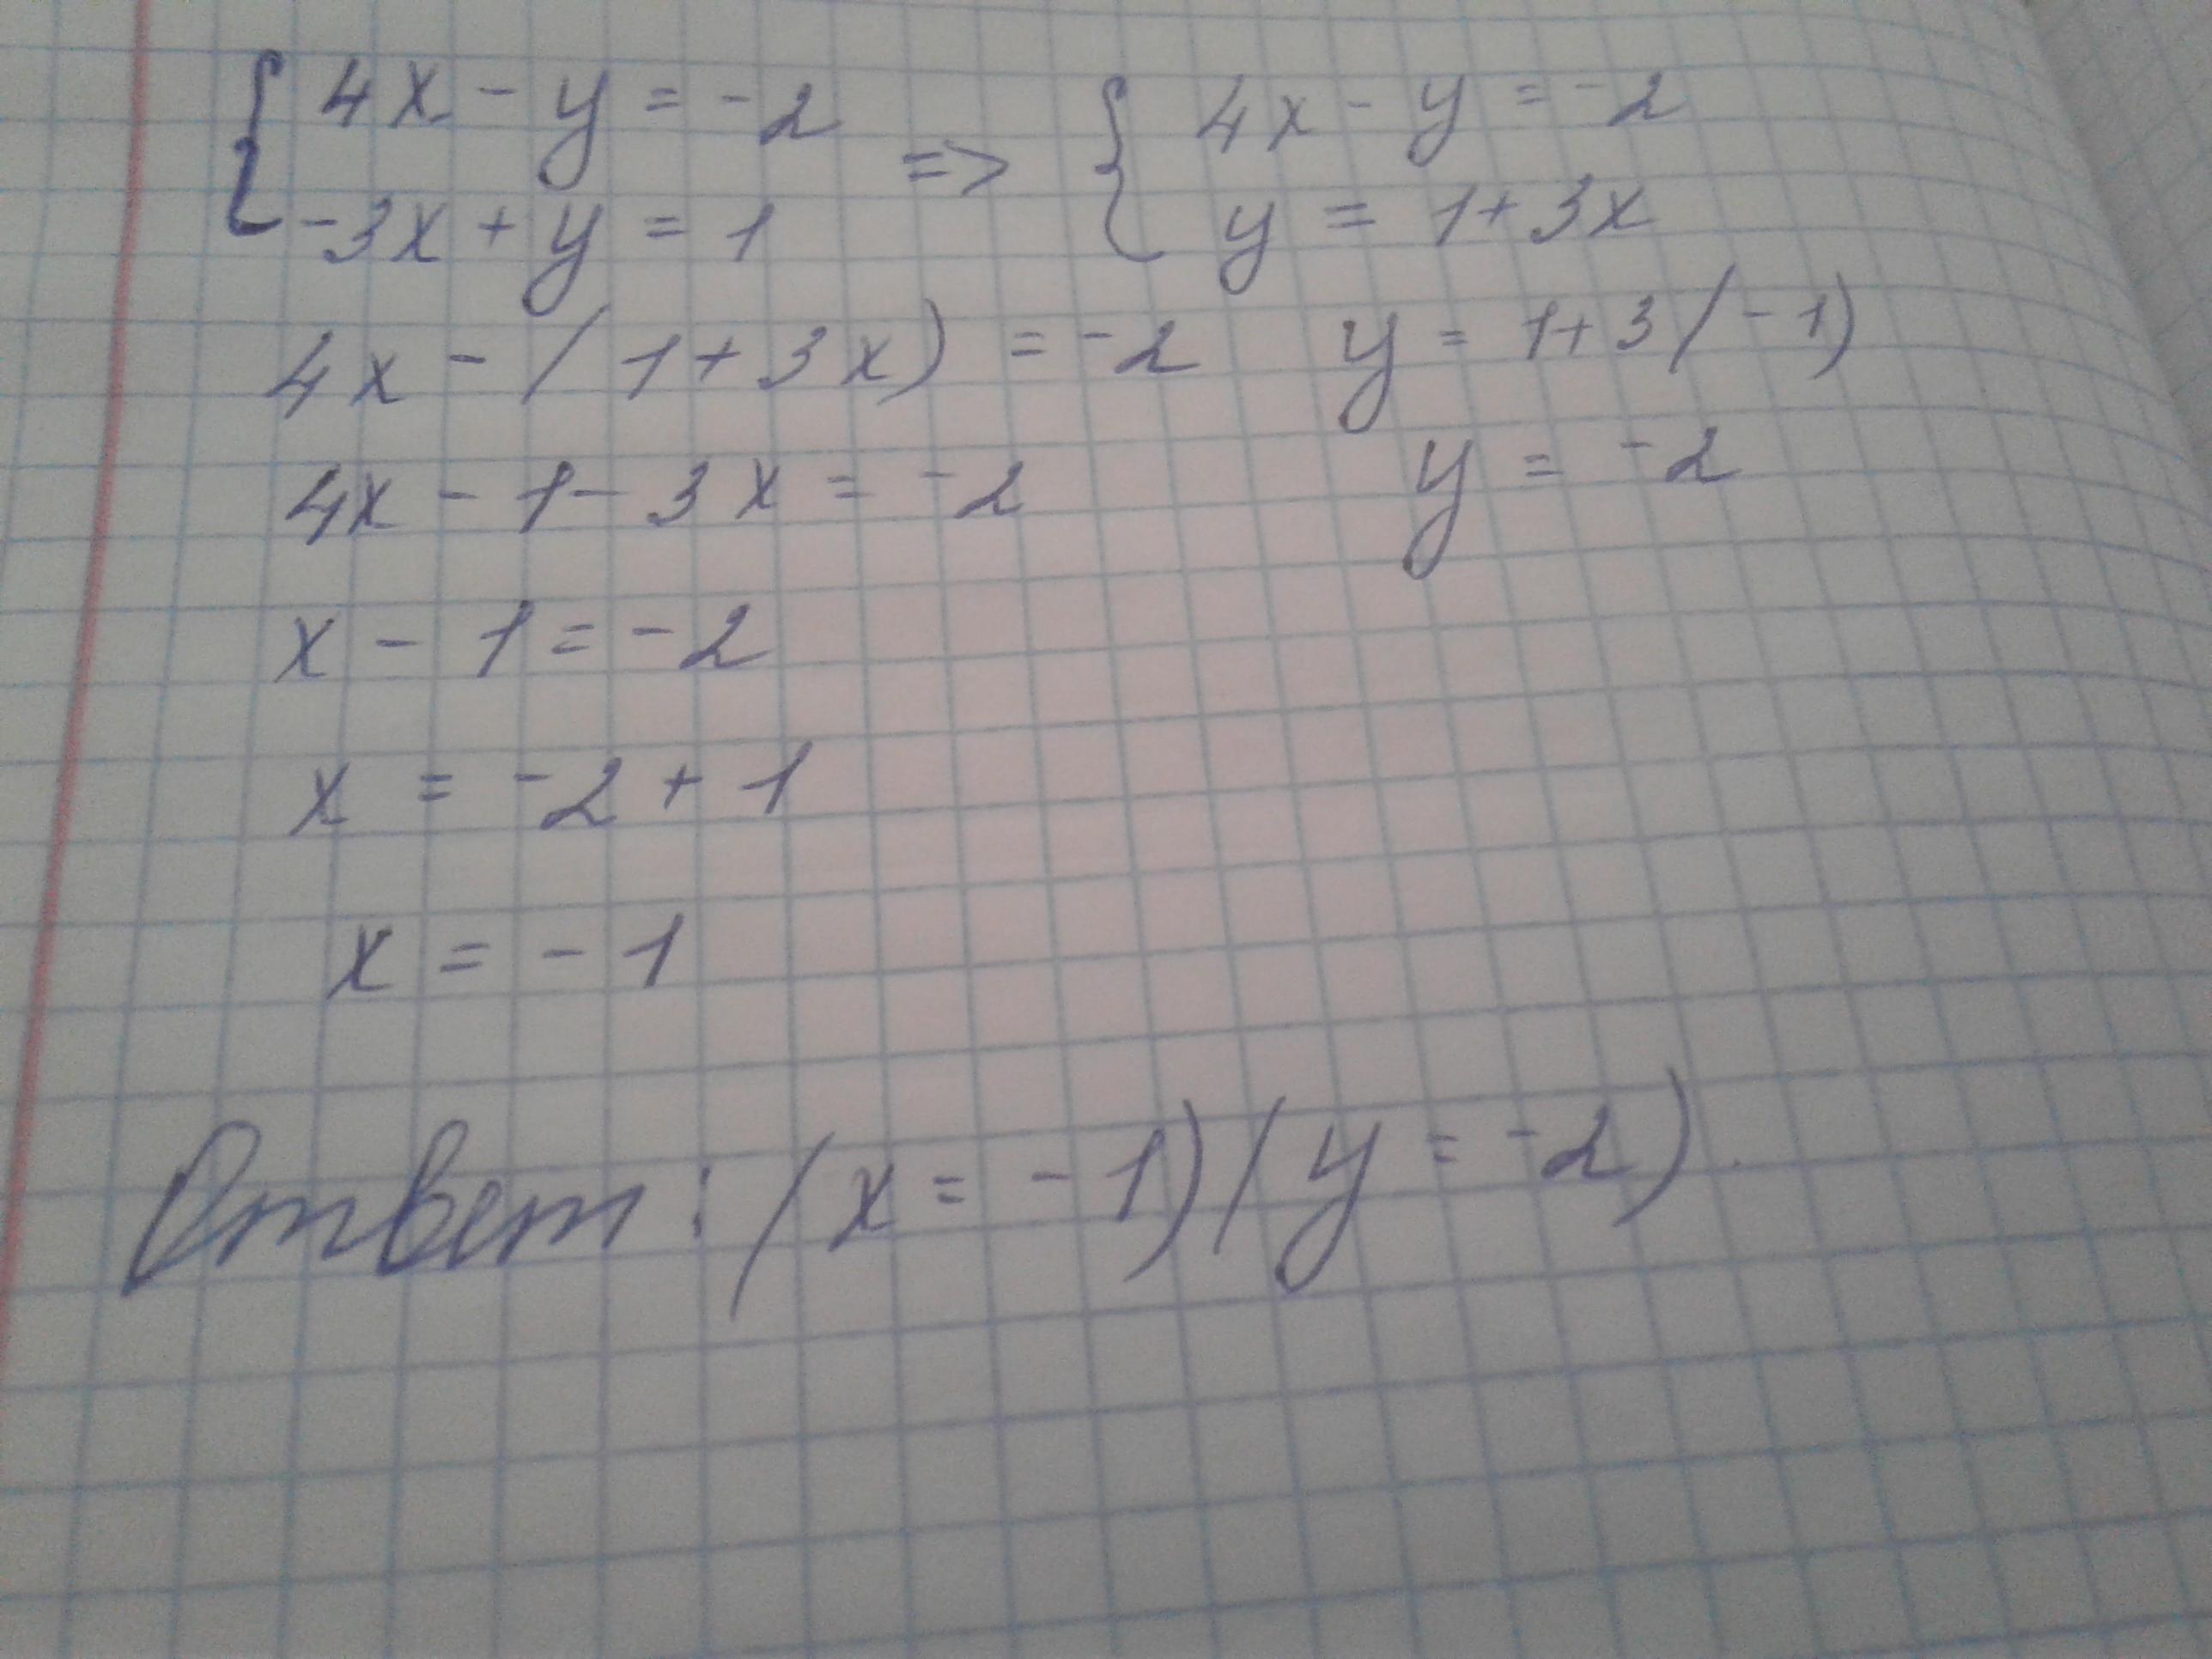 { 4x - y = -2 => { 4x - y = -2
-3x + y = 1 y = 1+3x
4x - (1+3x) = -2 y = 1+3(-1)
4x - 1 - 3x = -2 y = -2
x - 1 = -2
x = -2 + 1
x = -1
Ответ: (x = -1) (y = -2).